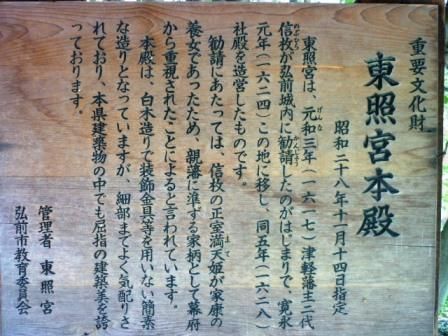 重要文化財
東照宮本殿
昭和二十八年十一月十四日指定
東照宮は、元和三年(一六一七)津軽藩主二代
信枚が弘前城内に勧請したのがはじまりで、寛永
元年(一六二四)この地に移し、同五年(一六二八)
社殿を造営したものです。
勧請にあたっては、信枚の正室満天姫が家康の
養女であったため、親藩に準ずる家柄として幕府
から重視されたことによると言われています。
本殿は、白木造りで装飾金具等を用いない簡素
な造りとなっていますが、細部までよく気配りさ
れており、本県建築物の中でも屈指の建築美を誇
っております。
管理者 東照宮
弘前市教育委員会